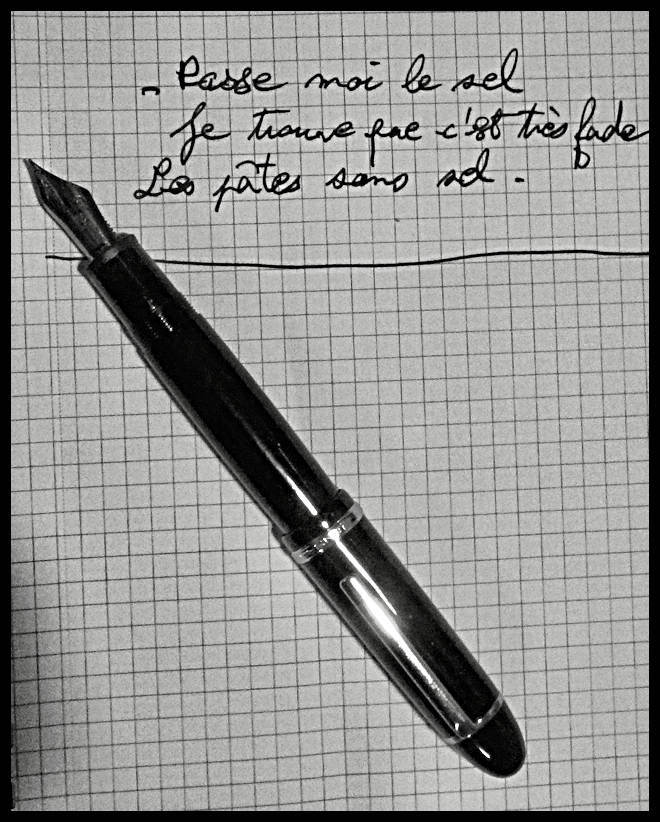 - Passe moi le sel
Je trouve que c'est très fade
Les pâtes sans sel .